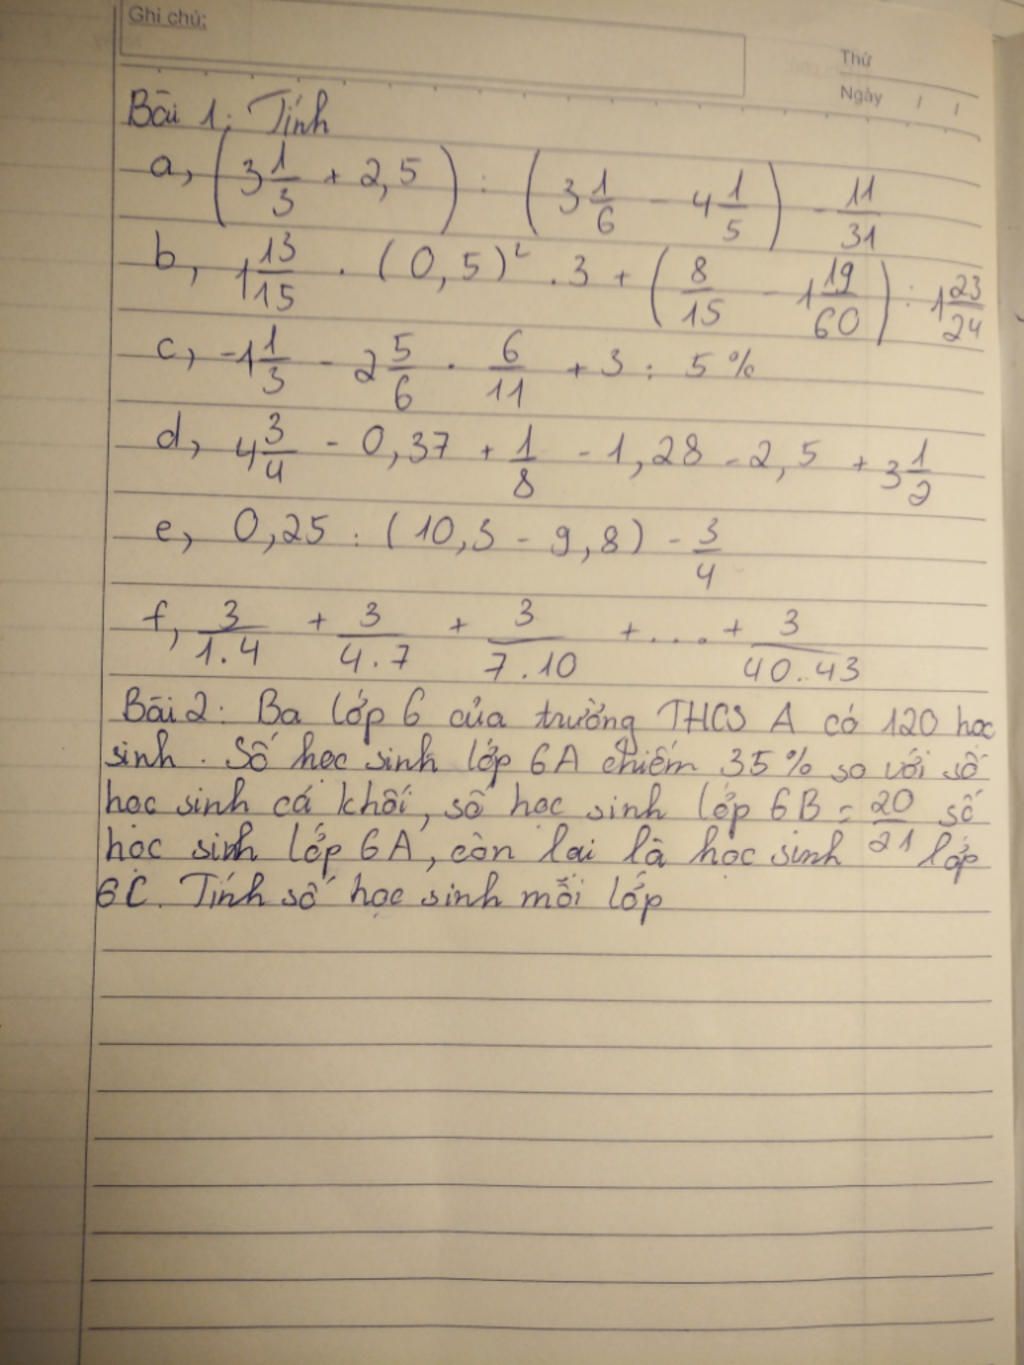 Ghi chú:
Thứ
Ngày / /
Bài 1: Tính
a, (3 1/3 + 2,5) : (3 1/6 - 4 1/5) - 11/31
b, 1 13/15 . (0,5)² . 3 + (8/15 - 1 19/60) : 1 23/24
c, -1 1/3 - 2 5/6 . 6/11 + 3 : 5%
d, 4 3/4 - 0,37 + 1/8 - 1,28 - 2,5 + 3 1/2
e, 0,25 : (10,3 - 9,8) - 3/4
f, 3/1.4 + 3/4.7 + 3/7.10 + .... + 3/40.43
Bài 2: Ba lớp 6 của trường THCS A có 120 học
sinh. Số học sinh lớp 6A chiếm 35% so với số
học sinh cả khối, số học sinh lớp 6B = 20/21 số
học sinh lớp 6A, còn lại là học sinh lớp
6C. Tính số học sinh mỗi lớp